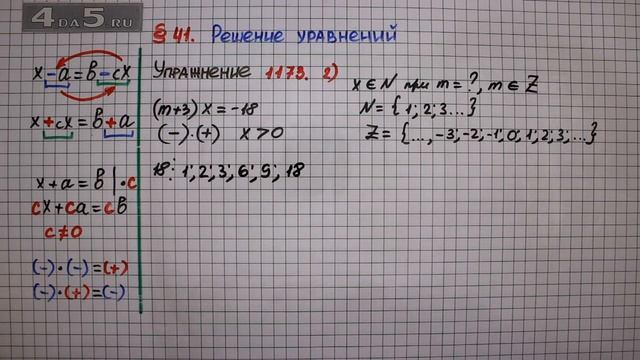 4DA5.RU
§ 41. Решение уравнений
x - a = b - cx
x + cx = b + a
x + a = b | · c
cx + ca = cb
c ≠ 0
(-) · (-) = (+)
(-) · (+) = (-)
Упражнение 1173. 2)
(m+3) x = -18
(-) · (+) x > 0
18: 1; 2; 3; 6; 9; 18
x ∈ N при m = ?, m ∈ Z
N = { 1; 2; 3... }
Z = { ..., -3; -2; -1; 0; 1; 2; 3; ... }